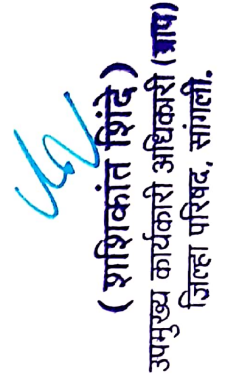 ( शशिकांत शिंदे )
उपमुख्य कार्यकारी अधिकारी (ग्राप)
जिल्हा परिषद, सांगली.